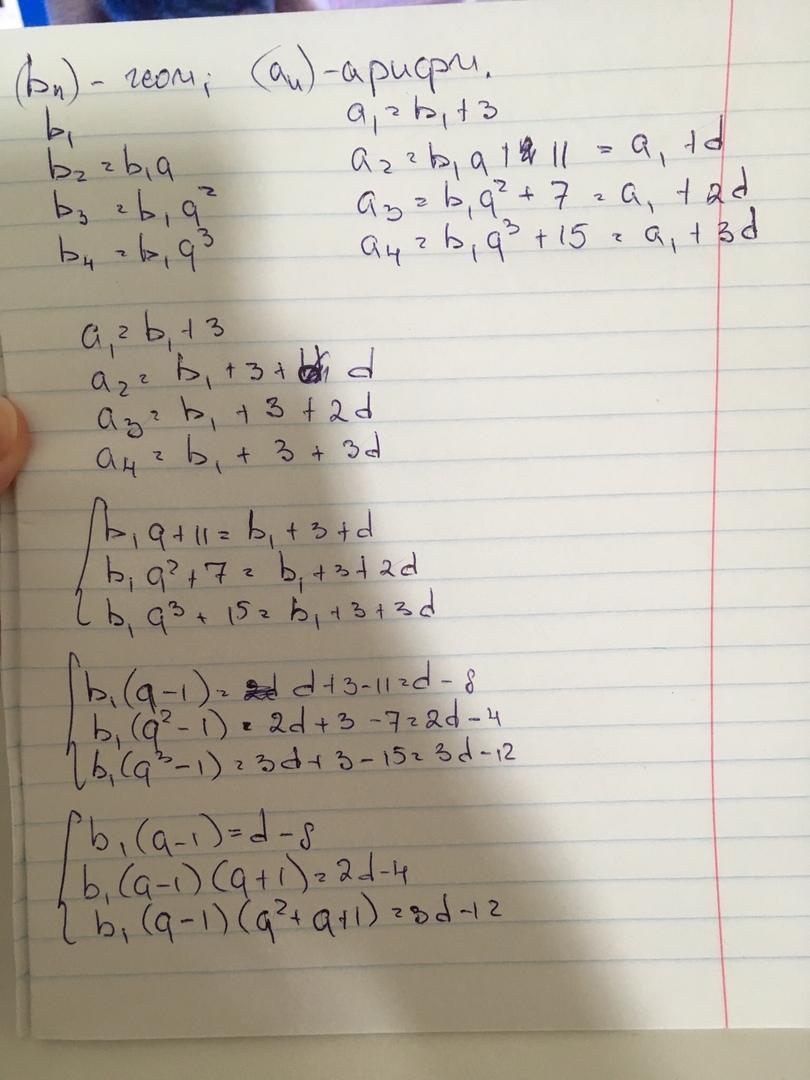 (bₙ) - геом; (aₙ) - арифм.
b₁ a₁ = b₁ + 3
b₂ = b₁q a₂ = b₁q + 11 = a₁ + d
b₃ = b₁q² a₃ = b₁q² + 7 = a₁ + 2d
b₄ = b₁q³ a₄ = b₁q³ + 15 = a₁ + 3d
a₁ = b₁ + 3
a₂ = b₁ + 3 + d
a₃ = b₁ + 3 + 2d
a₄ = b₁ + 3 + 3d
b₁q + 11 = b₁ + 3 + d
b₁q² + 7 = b₁ + 3 + 2d
b₁q³ + 15 = b₁ + 3 + 3d
b₁(q-1) = d + 3 - 11 = d - 8
b₁(q² - 1) = 2d + 3 - 7 = 2d - 4
b₁(q³ - 1) = 3d + 3 - 15 = 3d - 12
b₁(q-1) = d - 8
b₁(q-1)(q+1) = 2d - 4
b₁(q-1)(q² + q + 1) = 3d - 12